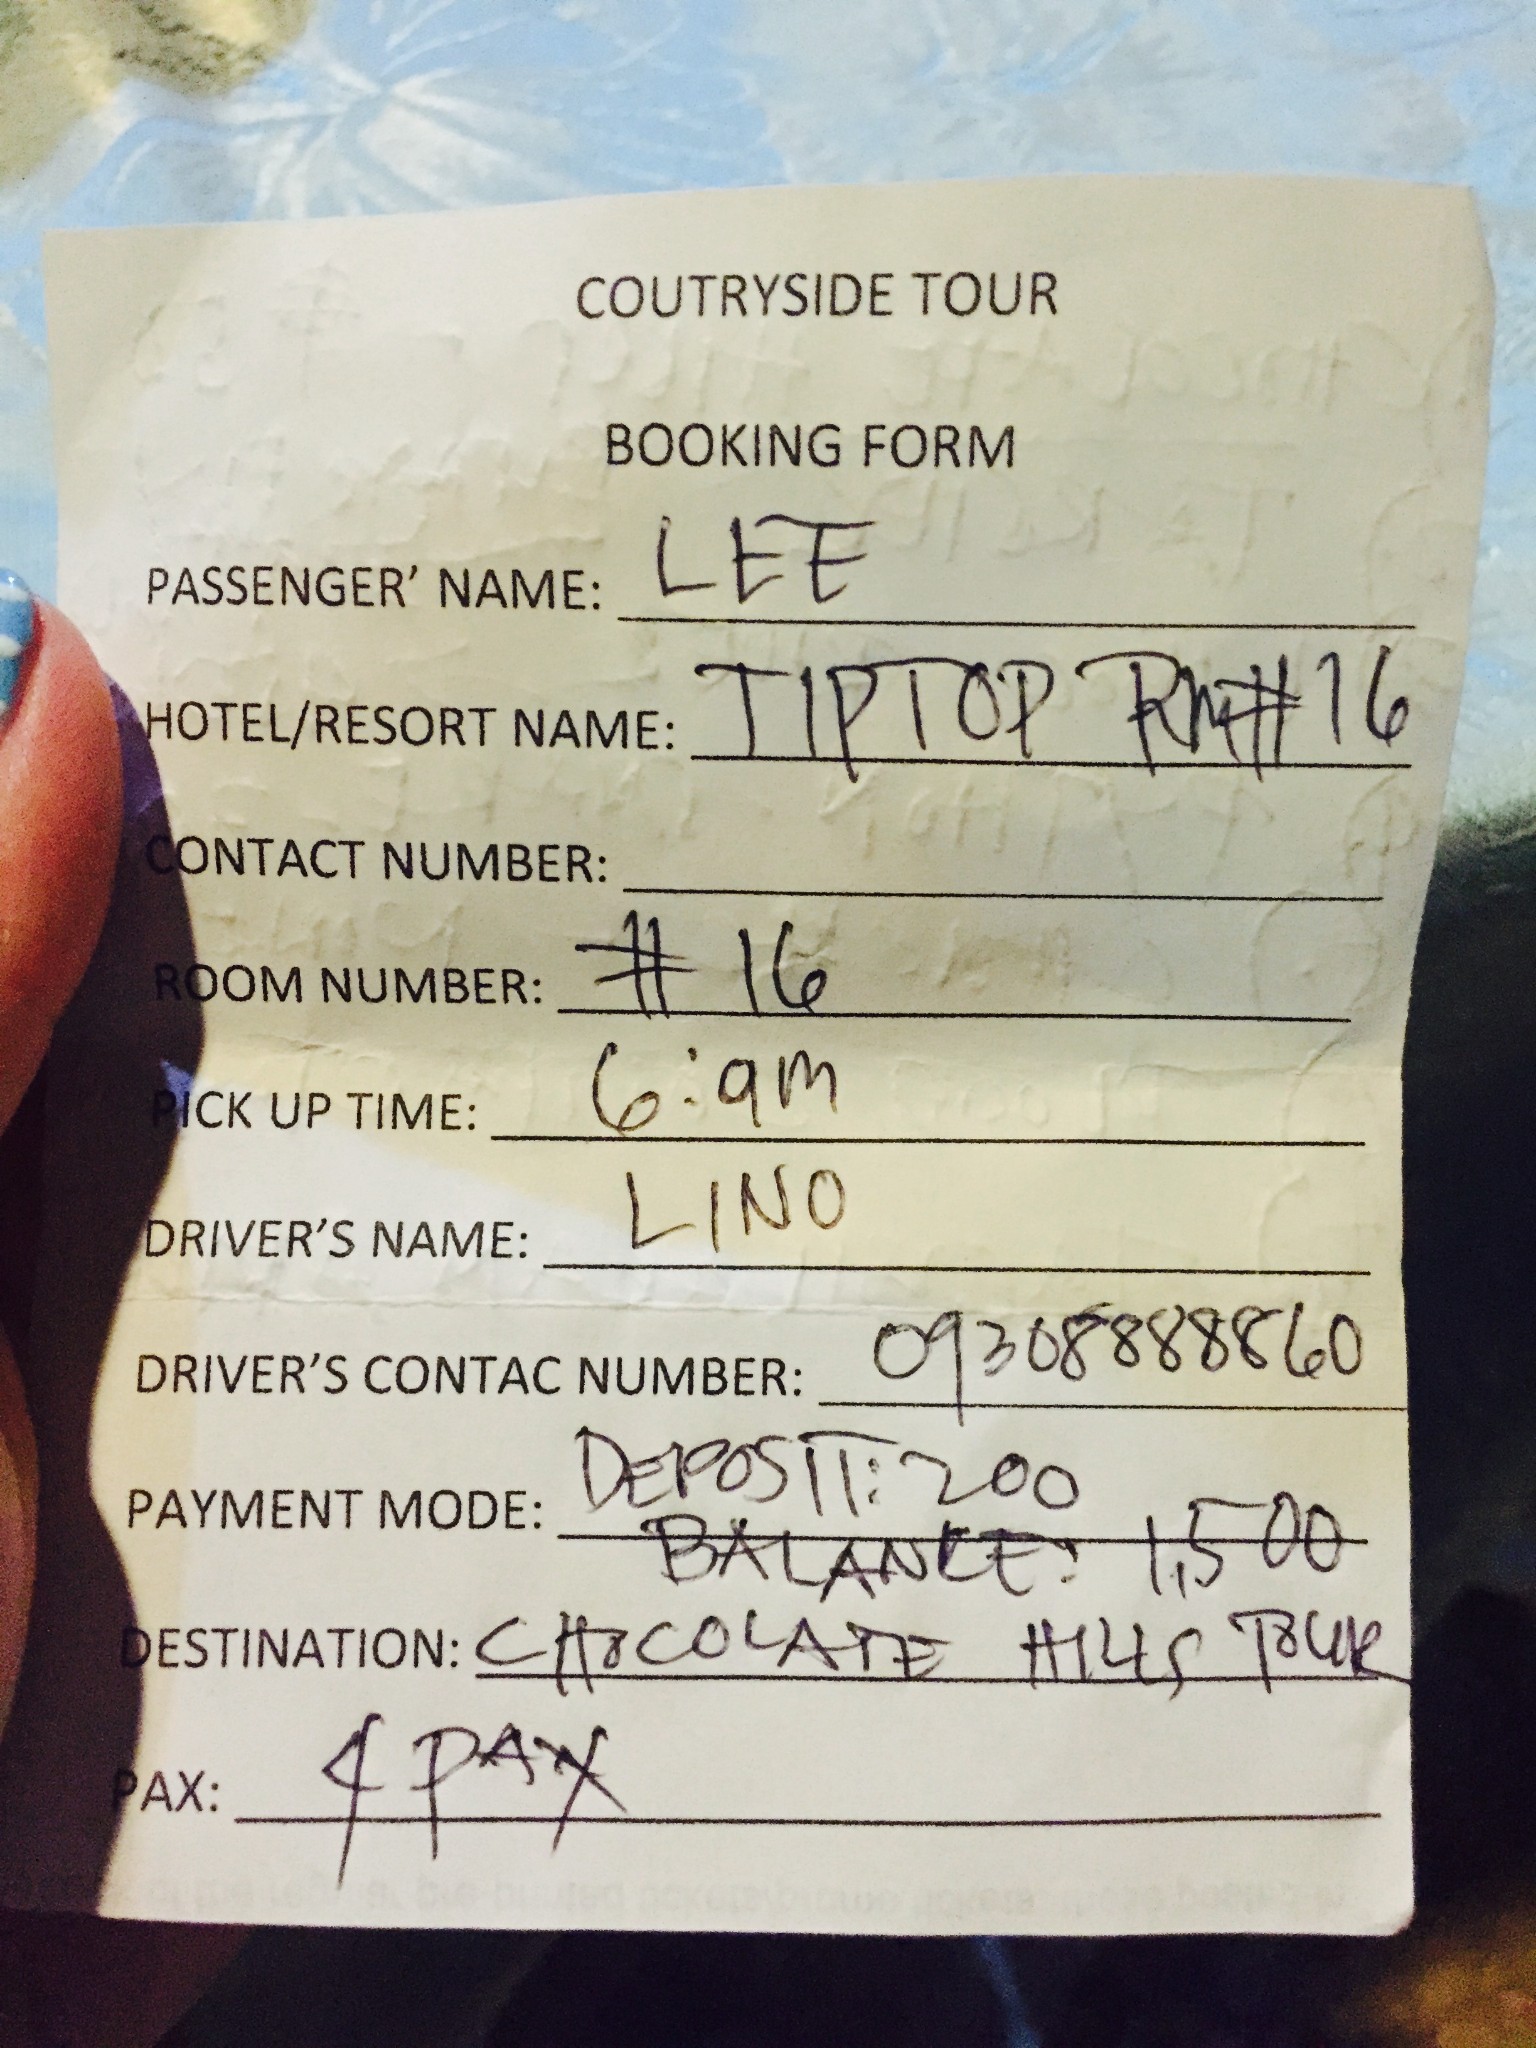 COUTRYSIDE TOUR
BOOKING FORM
PASSENGER' NAME: LEE
HOTEL/RESORT NAME: TIPTOP RM#16
CONTACT NUMBER:
ROOM NUMBER: # 16
PICK UP TIME: 6:am
DRIVER'S NAME: LINO
DRIVER'S CONTAC NUMBER: 09308888860
PAYMENT MODE: DEPOSIT: 200
BALANCE: 1,500
DESTINATION: CHOCOLATE HILLS TOUR
PAX: 4 PAX